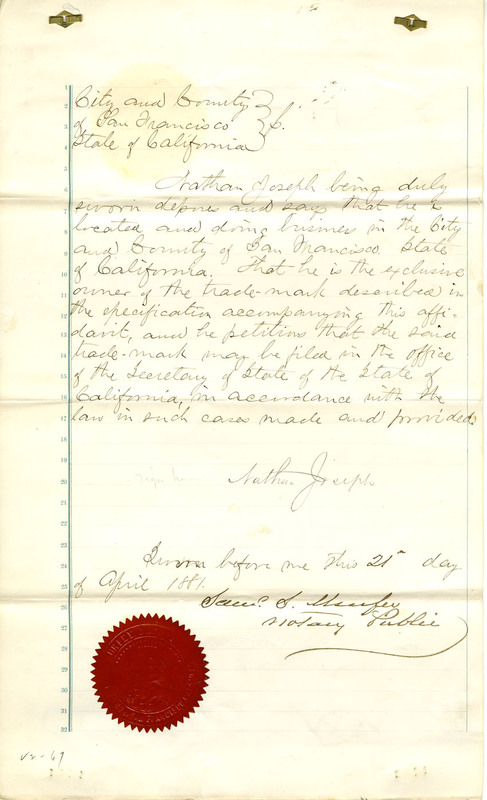 City and County
of San Francisco } S.
State of California
Nathan Joseph being duly
sworn deposes and says that he is
located and doing business in the City
and County of San Francisco State
of California. That he is the exclusive
owner of the trade-mark described in
the specification accompanying this affi-
davit, and he petitions that the said
trade-mark may be filed in the office
of the Secretary of State of the State of
California, in accordance with the
law in such cases made and provided
Nathan Joseph
Sworn before me this 21st day
of April 1881.
Saml. S.
Notary Public
1
2
3
4
5
6
7
8
9
10
11
12
13
14
15
16
17
18
19
20
21
22
23
24
25
26
27
28
29
30
31
32